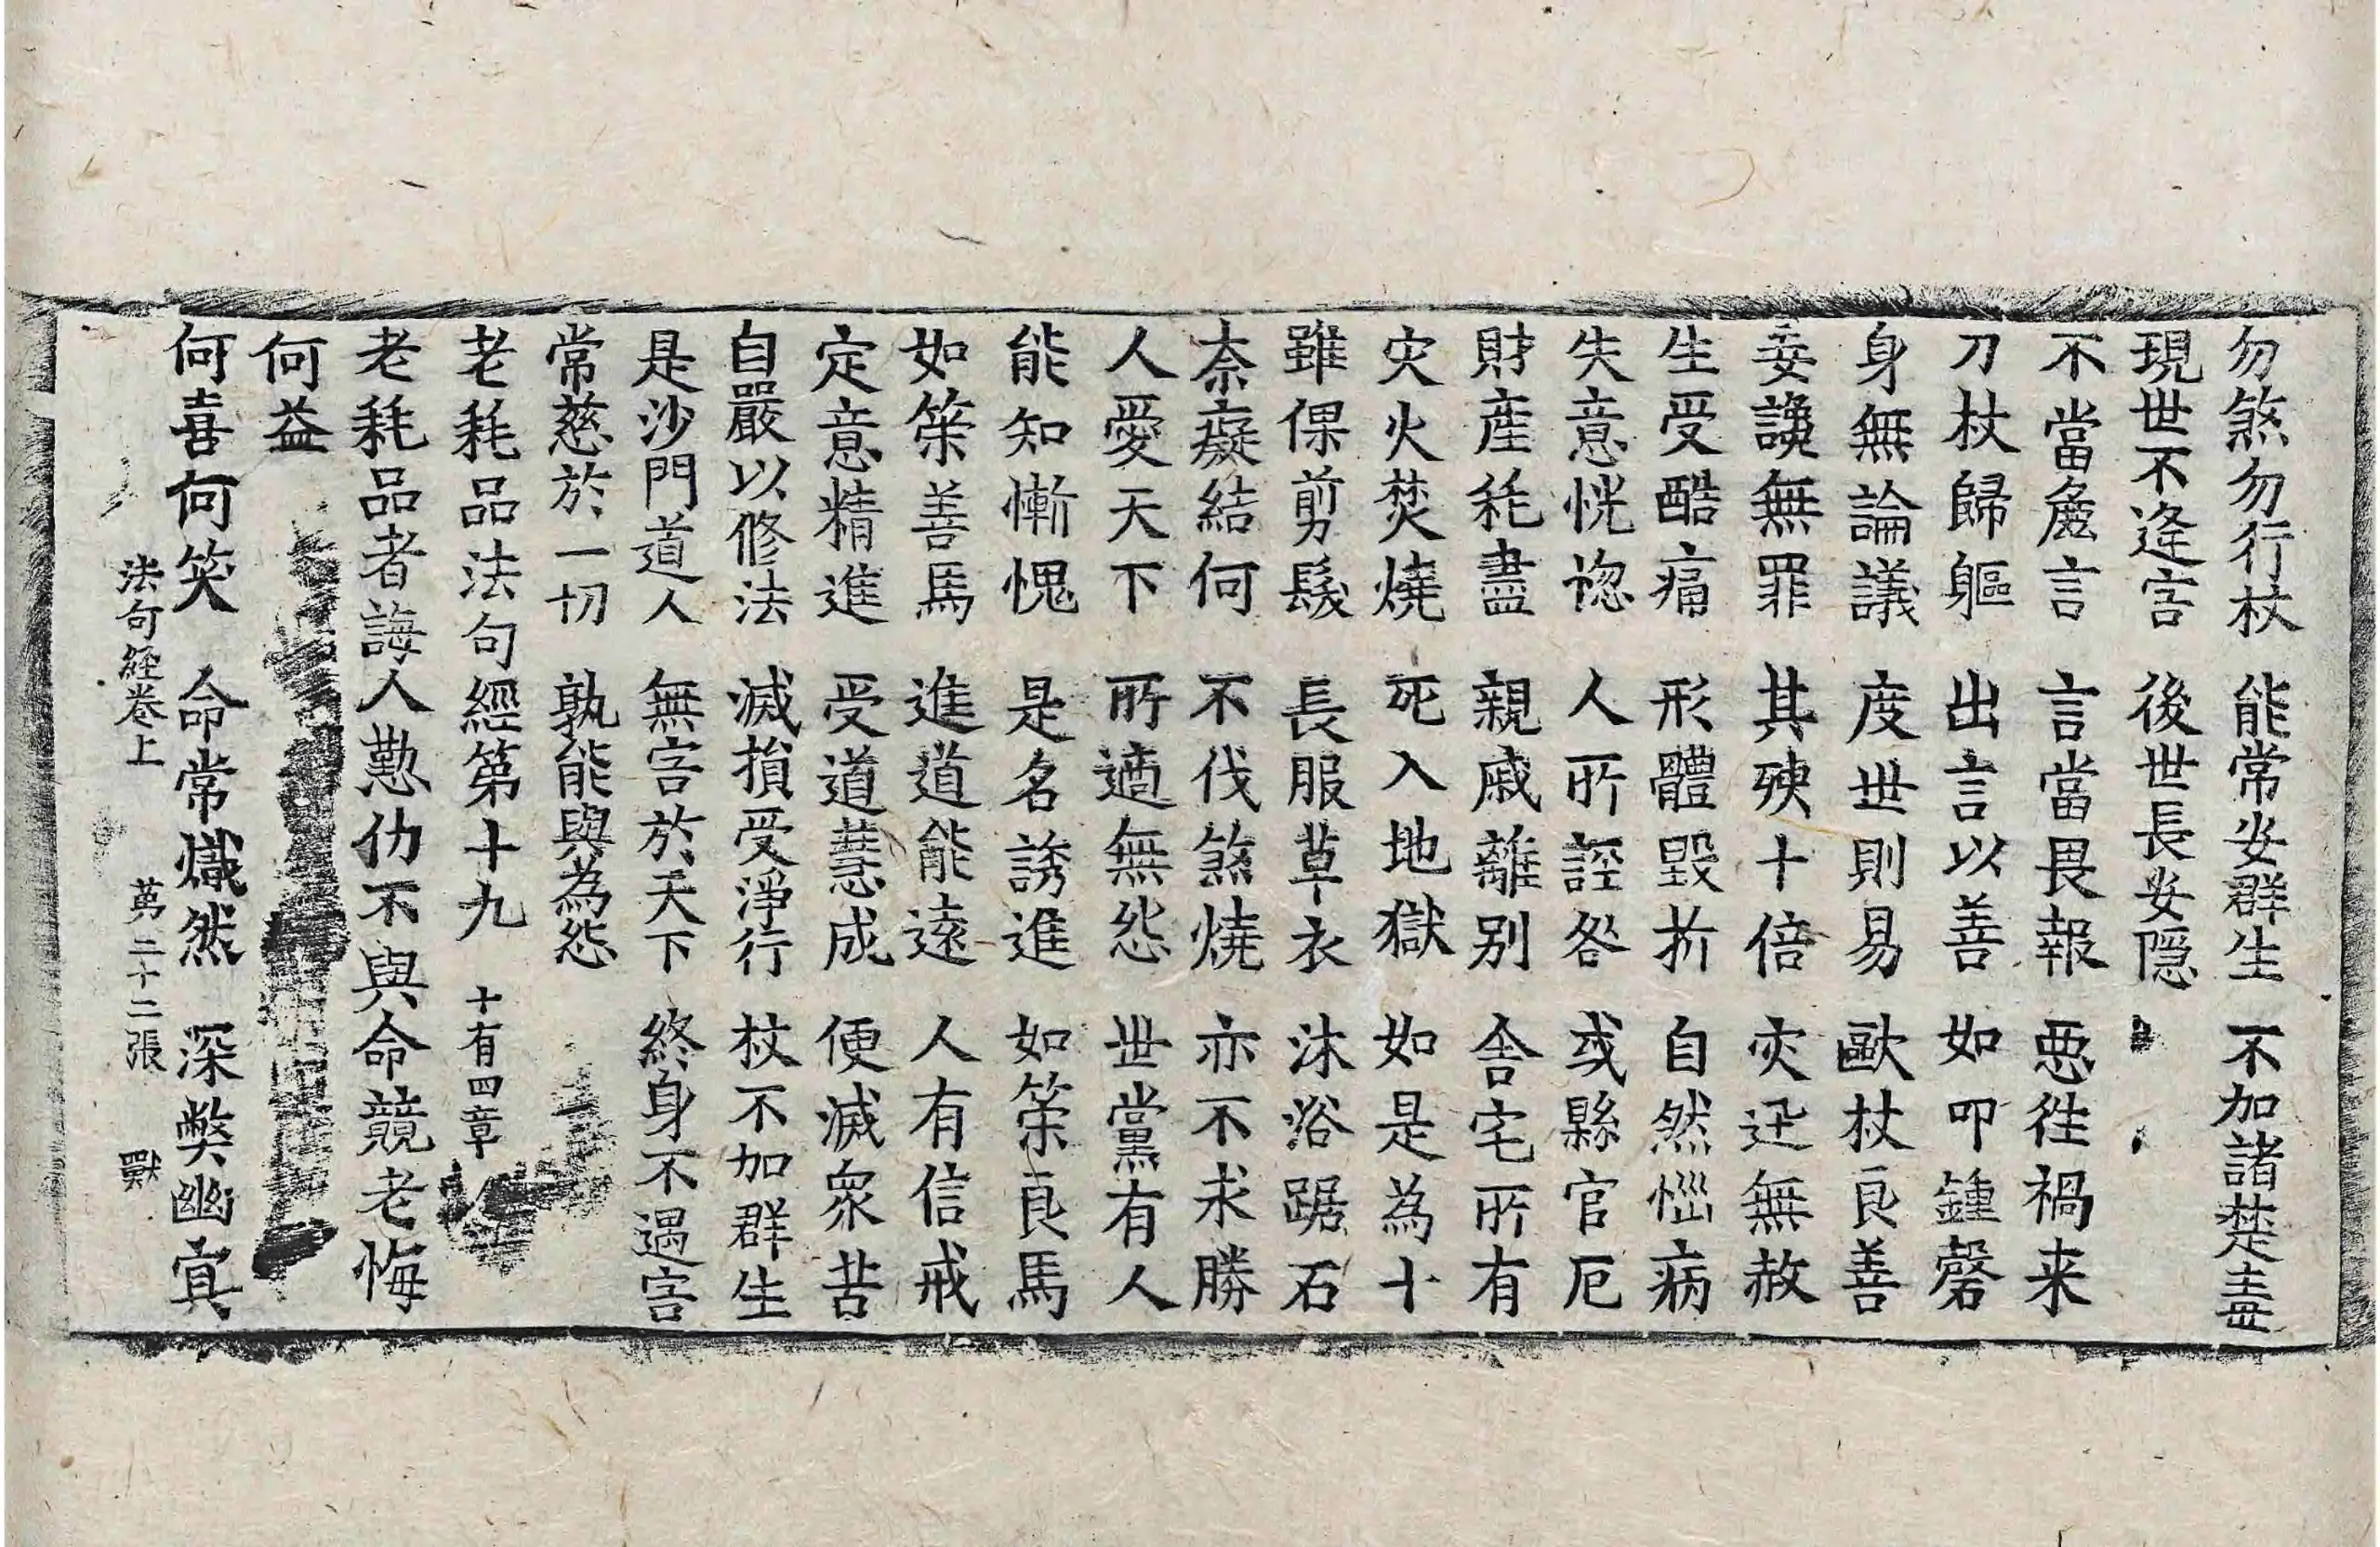 勿煞勿行杖 能常安群生 不加諸楚毒
現世不逢害 後世長安隱
不當麁言 言當畏報 惡往禍来
刀杖歸軀 出言以善 如叩鍾磬
身無論議 度世則易 歐杖良善
妄讒無罪 其殃十倍 灾迅無赦
生受酷痛 形體毀折 自然惱病
失意恍惚 人所誣咎 或縣官厄
財產耗盡 親戚離別 舍宅所有
灾火焚燒 死入地獄 如是為十
雖倮剪髮 長服草衣 沐浴踞石
柰癡結何 不伐煞燒 亦不求勝
人愛天下 所適無怨 世黨有人
能知慚愧 是名誘進 如策良馬
如策善馬 進道能遠 人有信戒
定意精進 受道慧成 便滅衆苦
自嚴以修法 滅損受淨行 杖不加群生
是沙門道人 無害於天下 終身不遇害
常慈於一切 孰能與為怨
老耗品法句經第十九 十有四章
老耗品者誨人懃仂不與命競老悔
何益
何喜何笑 命常熾然 深弊幽冥
法句經卷上 苐二十二張 獸